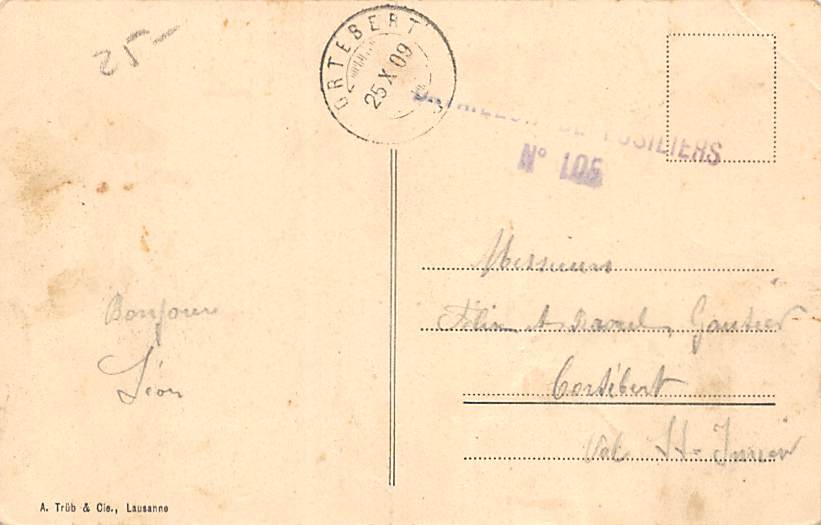 25.-
CORTÉBERT
25 X 09
BATAILLON DE FUSILIERS
N° 105
Messieurs
Félix & Gautier
Cortébert
Val St-Imier
Bonjour
Léon
A. Trüb & Cie., Lausanne